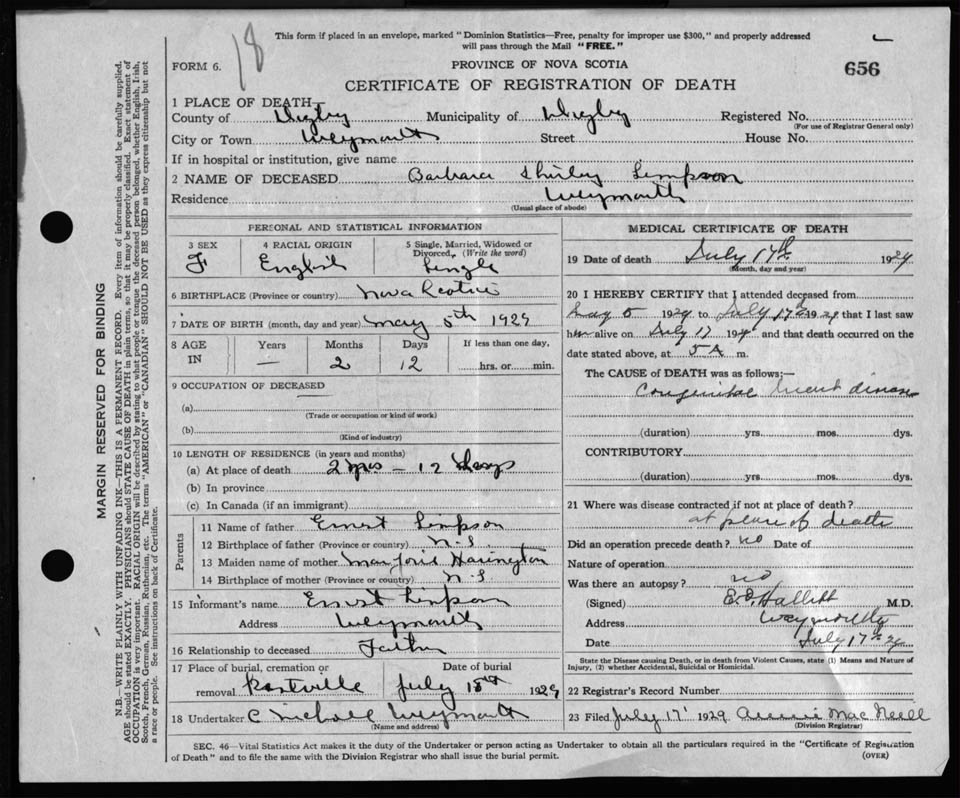 18
This form if placed in an envelope, marked "Dominion Statistics—Free, penalty for improper use $300," and properly addressed
will pass through the Mail "FREE."
FORM 6.
PROVINCE OF NOVA SCOTIA
656
CERTIFICATE OF REGISTRATION OF DEATH
1 PLACE OF DEATH—
County of Digby Municipality of Digby Registered No.
(For use of Registrar General only)
City or Town Weymouth Street House No.
If in hospital or institution, give name
2 NAME OF DECEASED Barbara Shirley Simpson
Residence Weymouth
(Usual place of abode)
PERSONAL AND STATISTICAL INFORMATION
3 SEX 4 RACIAL ORIGIN 5 Single, Married, Widowed or
Divorced, (Write the word)
F English Single
6 BIRTHPLACE (Province or country) Nova Scotia
7 DATE OF BIRTH (month, day and year) May 5th 1929
8 AGE Years Months Days If less than one day,
IN — 2 12 hrs. or min.
9 OCCUPATION OF DECEASED
(a)
(Trade or occupation or kind of work)
(b)
(Kind of industry)
10 LENGTH OF RESIDENCE (in years and months)
(a) At place of death 2 — 12 days
(b) In province
(c) In Canada (if an immigrant)
Parents
11 Name of father Ernest Simpson
12 Birthplace of father (Province or country) N.S
13 Maiden name of mother Marjorie Harington
14 Birthplace of mother (Province or country) N.S
15 Informant's name Ernest Simpson
Address Weymouth
16 Relationship to deceased Father
17 Place of burial, cremation or Date of burial
removal July 18th 1929
18 Undertaker C Weymouth
(Name and address)
MEDICAL CERTIFICATE OF DEATH
19 Date of death July 17th 1929
(Month, day and year)
20 I HEREBY CERTIFY that I attended deceased from
May 5 1929 to July 17th 1929 that I last saw
her alive on July 17 19 and that death occurred on the
date stated above, at 5 A m.
The CAUSE of DEATH was as follows:—
Congenital heart disease
(duration) yrs. mos. dys.
CONTRIBUTORY
(duration) yrs. mos. dys.
21 Where was disease contracted if not at place of death?
at place of death
Did an operation precede death? no Date of
Nature of operation
Was there an autopsy? no
(Signed) Hallett M.D.
Address Weymouth
Date July 17th 29
State the Disease causing Death, or in death from Violent Causes, state (1) Means and Nature of
Injury, (2) whether Accidental, Suicidal or Homicidal.
22 Registrar's Record Number
23 Filed July 17' 1929 Annie MacNeill
(Division Registrar)
SEC. 46—Vital Statistics Act makes it the duty of the Undertaker or person acting as Undertaker to obtain all the particulars required in the "Certificate of Registration
of Death" and to file the same with the Division Registrar who shall issue the burial permit.
(OVER)
MARGIN RESERVED FOR BINDING
N.B.—WRITE PLAINLY WITH UNFADING INK—THIS IS A PERMANENT RECORD. Every item of information should be carefully supplied.
AGE should be stated EXACTLY. PHYSICIANS should STATE CAUSE OF DEATH in plain terms, so that it may be properly classified. Exact statement of
OCCUPATION is very important. RACIAL ORIGIN will be described by stating to what people or tongue the deceased person belonged, whether English, Irish,
Scotch, French, German, Russian, Ruthenian, etc. The terms "AMERICAN" or "CANADIAN" SHOULD NOT BE USED as they express citizenship but not
a race or people. See instructions on back of Certificate.